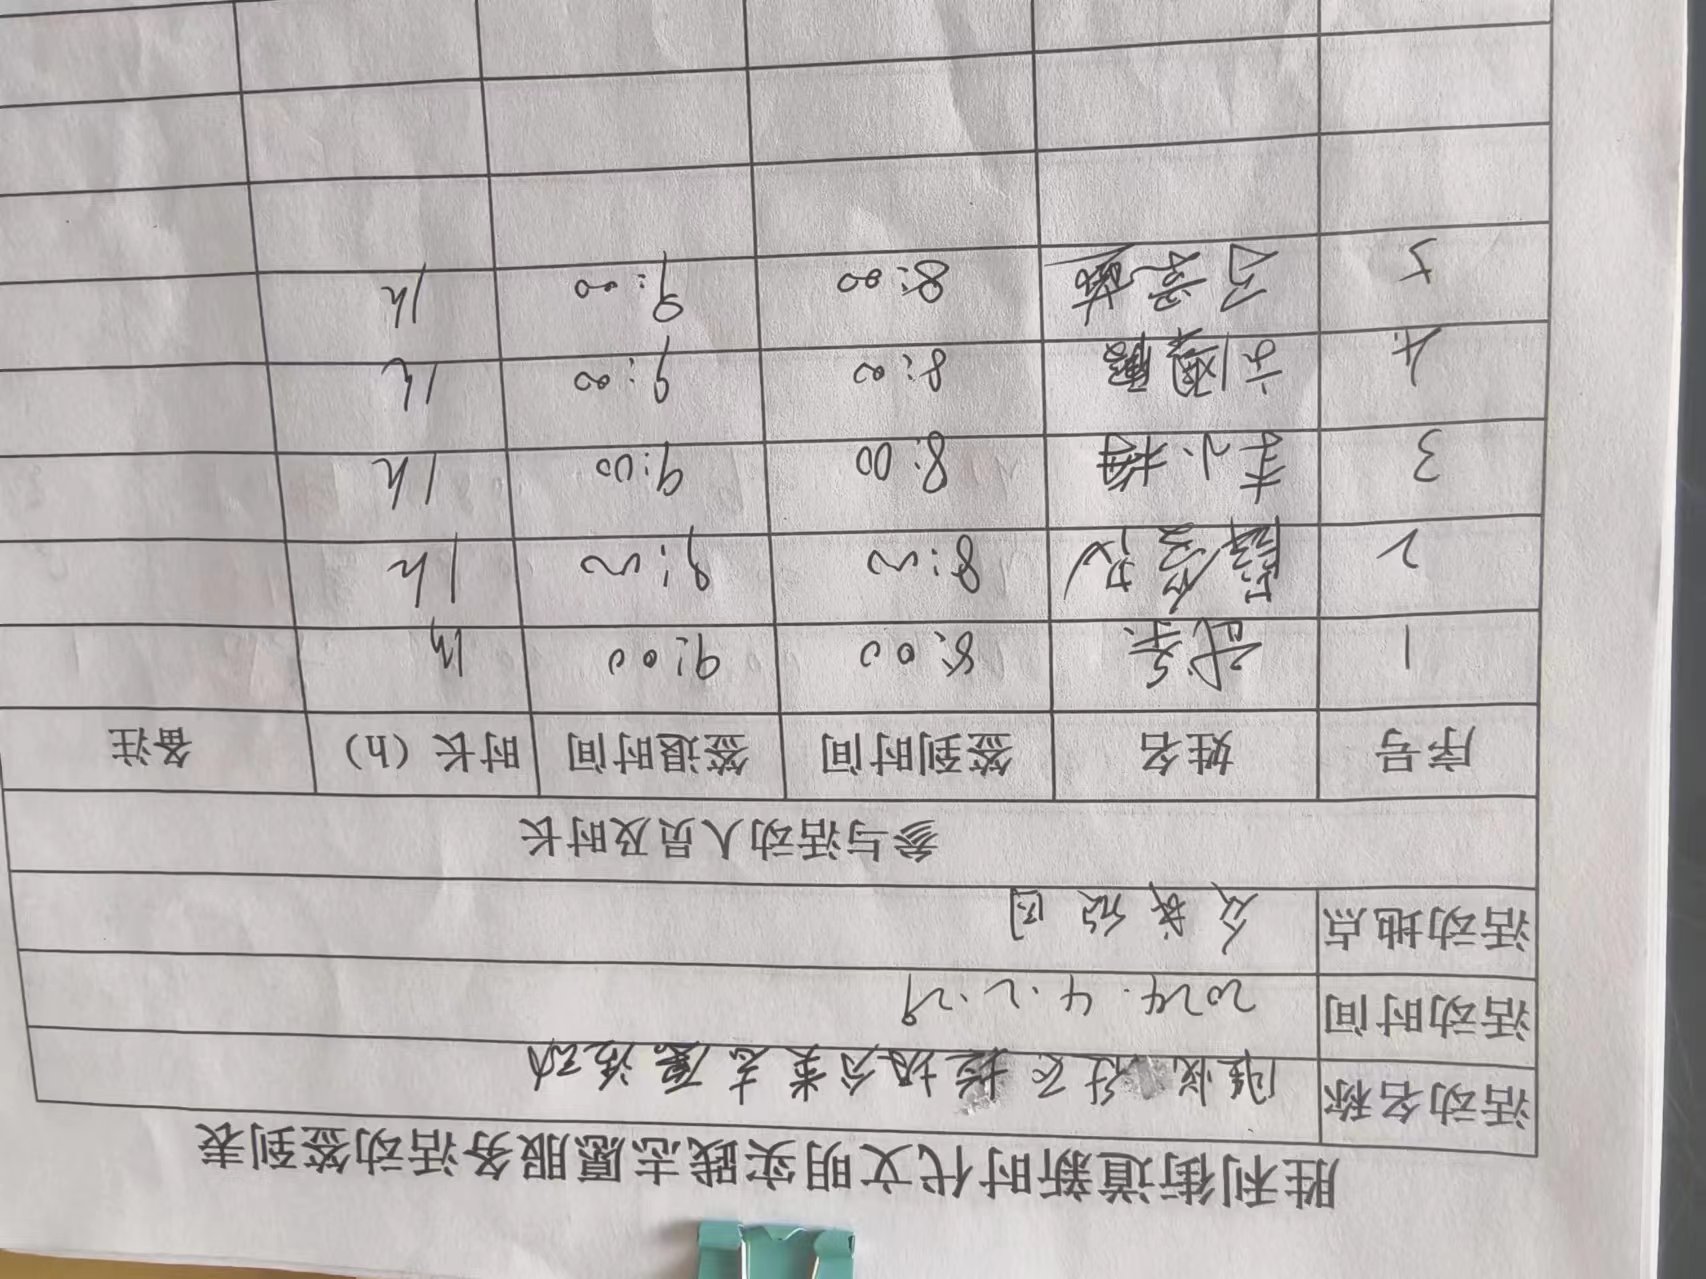 胜利街道新时代文明实践志愿服务活动签到表
活动名称 社区垃圾分类志愿活动
活动时间 2024.4.2.29
活动地点
参与活动人员及时长
序号 姓名 签到时间 签退时间 时长（h） 备注
1 8:00 9:00 1h
2 8:00 9:00 1h
3 8:00 9:00 1h
4. 8:00 9:00 1h
5 8:00 9:00 1h